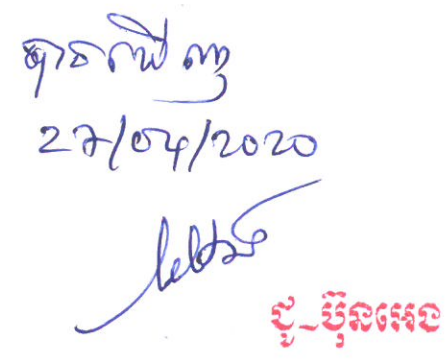 បានឃើញ
27/04/2020
ជូ_ប៊ុនអេង